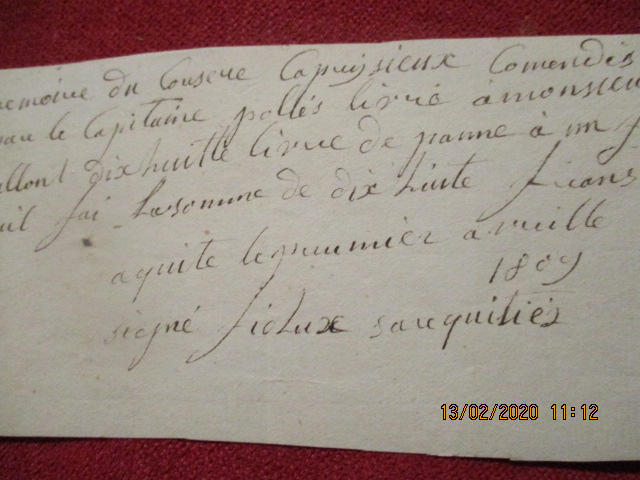 memoire du Consere Capuissieux Comendés
par le Capitaine pollés livré a monsieur
allont dix huitte livre de panne à un f
uil fai la somme de dix huite frans
aquite le preumier avrille
1809
signé
13/02/2020 11:12